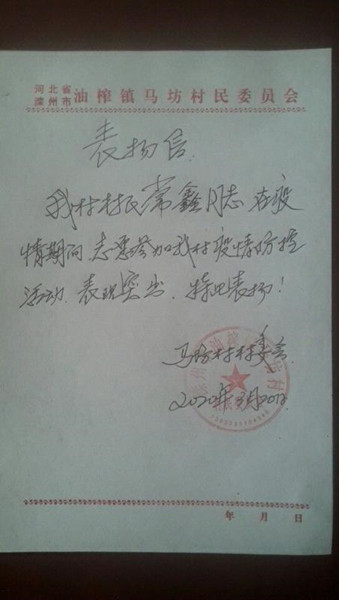 河北省
滦州市 油榨镇马坊村民委员会
表扬信
我村村民常鑫同志在疫
情期间志愿参加我村疫情防控
活动.表现突出.特此表扬!
马坊村村委会
2020年3月20日
年 月 日